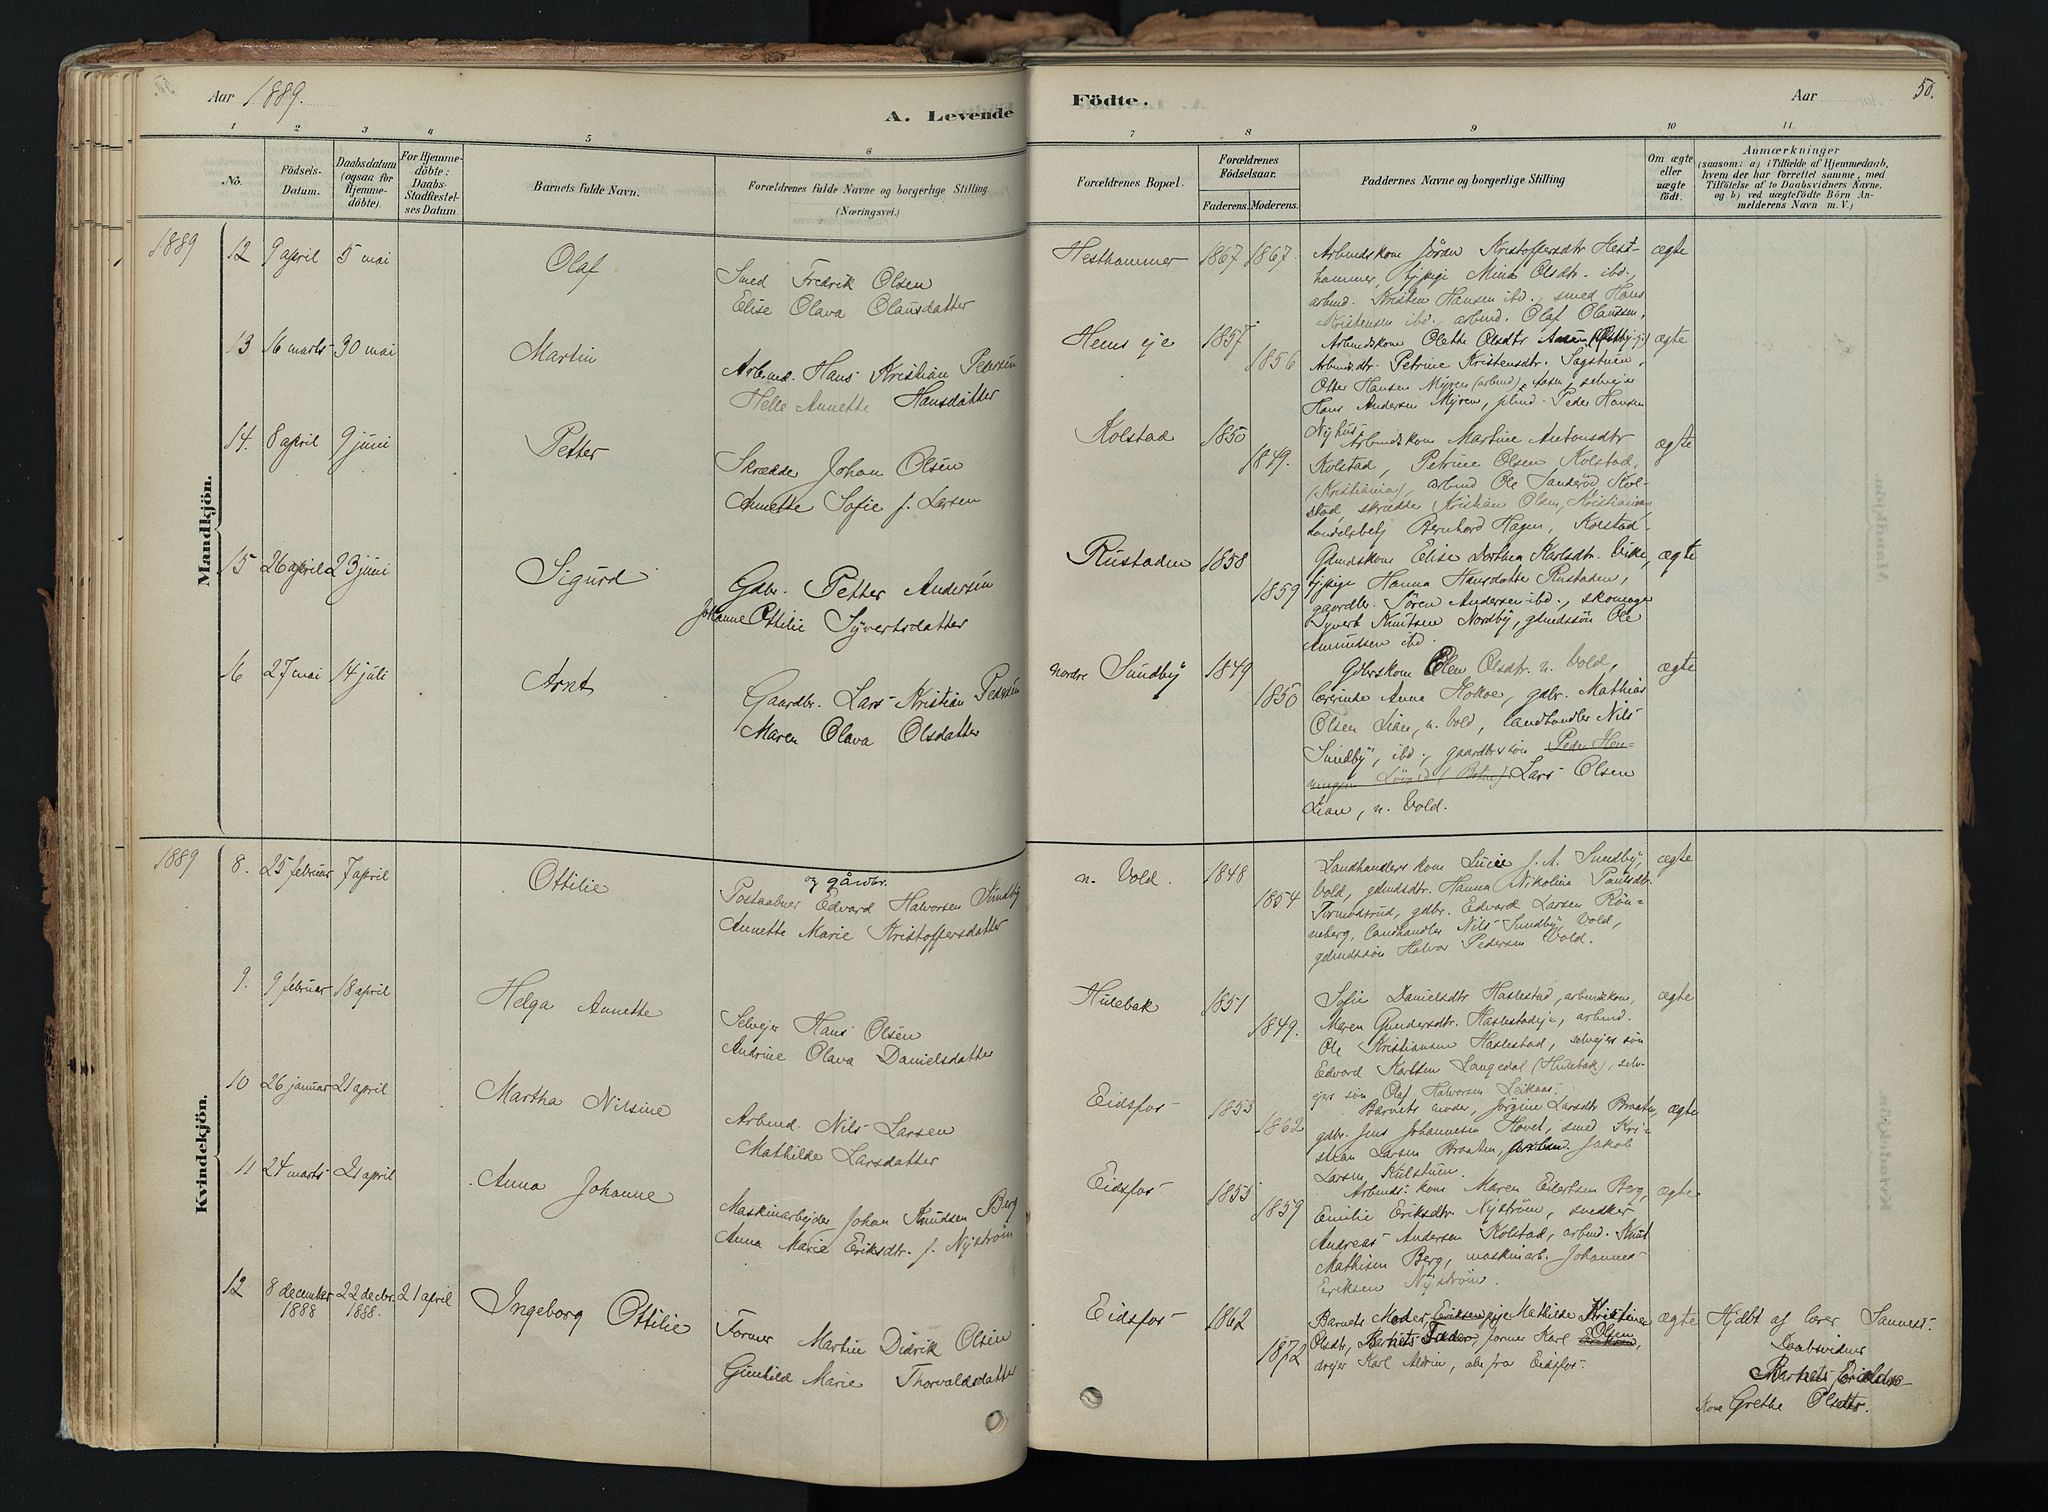 Aar 1889.
A. Levende
Födte.
Aar
50.
1
2
3
4
5
6
7
8
9
10
11
No.
Födsels-Datum.
Daabsdatum (ogsaa for Hjemme-döbte).
For Hjemme-döbte: Daabs-Stadfæstel-ses Datum.
Barnets fulde Navn.
Forældrenes fulde Navne og borgerlige Stilling
(Næringsvei.)
Forældrenes Bopæl.
Forældrenes Födselsaar.
Faderens. Moderens.
Faddernes Navne og borgerlige Stilling
Om ægte eller uægte födt.
Anmærkninger
(saasom: a) i Tilfælde af Hjemmedaab,
hvem der har forrettet samme, med
Tilföielse af to Daabsvidners Navne.
og b) ved uægtefödte Börn An-
melderens Navn m. V.)
Mandkjön.
1889 12 9 april 5 mai Olaf
Smed Fredrik Olsen
Elise Olava Olausdatter
Hesthammer 1867 1867
Arbmdskone Jöran Kristoffersdtr Hest-
hammer, ... Mina Olsdtr. ibd.,
arbmd. Kristen Hansen ibd., smed Hans
Kristensen ibd., arbmd. Olaf Olaussen.
ægte
13 16 marts 30 mai Martin
Arbmd. Hans Kristian Pedersen
Helle Annette Hansdatter
Hems eje 1857 1856
Arbmdskone Olette Olsdtr
Arbmdsdtr. Petrine Kristensdtr. Sagstuen,
Otter Hansen Myren (arbmd), selvejer
Hans Andersen Myren, Peder Hansen
Nyhus
ægte
14. 8 april 9 juni Petter
Skrædder Johan Olsen
Annette Sofie f. Larsen
Kolstad 1850 1849.
Arbmdskone Martine Antonsdtr
Kolstad, Petrine Olsen, Kolstad,
(Kristiania), arbmd Ole Sanderöd Kol-
stad, skrædder Kristian Olsen, Kristiania,
handelsbetj Bernhard Hagen, Kolstad.
ægte
15 26 april 23 juni Sigurd
Gdbr. Petter Andersen
Johanne Ottilie Syvertsdatter
Rustaden 1858 1859
Gdmdskone Elise Dorthea Karlsdtr. Virke,
Hanna Hansdatter Rustaden,
gaardbr. Sören Andersen ibd., skomager
Syvert Knutsen Nordby, gdmdssön Ole
Amundsen ibd.
ægte
16 27 mai 14 juli Arnt
Gaardbr. Lars Kristian Pedersen
Maren Olava Olsdatter
nordre Sundby 1849 1850
Gdbrskone Elen Olsdtr. n. Vold,
lærerinde Anna Hokoe, gdbr. Mathias
Olsen Lian, n. Vold, landhandler Nils
Sundby, ibd., gaardbrssön Peder Hen-
ningsen Lars Olsen
Lian, n. Vold.
ægte
Kvindekjön.
1889 8. 25 februar 7 april Ottilie
og gårdbr.
Postaabner Edvard Halvorsen Sundby
Annette Marie Kristoffersdatter
n. Vold. 1848 1854
Landhandlers kone Lucie f. A. Sundby,
Vold, gdmdsdtr. Hanna Nikoline Paulsdtr.
Tormodsrud, gdbr. Edvard Larsen Rön-
neberg, landhandler Nils Sundby, Vold,
gdmdssön Halvor Pedersen Vold.
ægte
9. 9 februar 18 april Helga Annette
Selvejer Hans Olsen
Andrine Olava Danielsdatter
Hulebak 1851 1849.
Sofie Danielsdtr Haslestad, arbmdskone,
Maren Gundersdtr. Haslestadeje, arbmd.
Ole Kristiansen Haslestad, selvejers sön
Edvard Karlsen Langedal (Hulebak), selv-
ejers sön Olaf Halvorsen Leikaas.
ægte
10 26 januar 21 april Martha Nilsine
Arbmd. Nils Larsen
Mathilde Larsdatter
Eidsfos 1853 1862
Barnets moder, Jörgine Larsdtr Braaten,
gdbr. Jens Johannesen Hovet, smed Kri-
stian Larsen Braaten, arbmd. Jakob
Larsen, Kulstuen.
ægte
11 24 marts 21 april Anna Johanne
Maskinarbejder Johan Knudsen Berg
Anna Marie Eriksdtr. f. Nyström
Eidsfos 1855 1859
Arbmds. kone Maren Eilertsen Berg,
Emilie Eriksdtr. Nyström, snedker
Andreas Andersen Kolstad, arbmd. Knut
Mathisen Berg, maskinarb. Johannes
Eriksen Nyström.
ægte
12 8 december 1888 22 decbr. 1888. 21 april Ingeborg Ottilie
Former Martin Didrik Olsen
Gunhild Marie Thorvaldsdatter
Eidsfos 1862 1872
Barnets Moder, Eriksen pige Mathilde Kristine
Olsdtr, Barnets Fader, former Karl Olsen,
drejer Karl Aldrin, alle fra Eidsfos.
ægte
Hjdbt af lærer Sannes.
Daabsvidner
Barnets forældre
Kone Grethe Olsdtr.